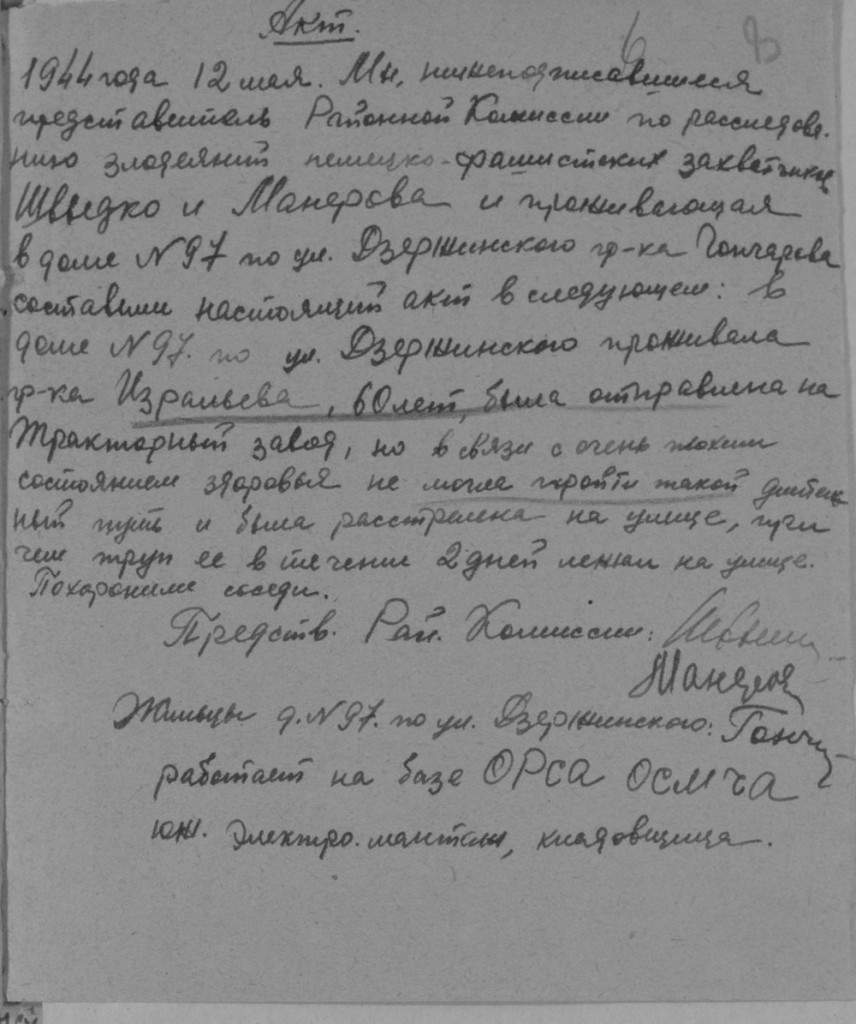 Акт.
1944 года 12 мая. Мы, нижеподписавшиеся
представитель Районной Комиссии по расследова-
нию злодеяний немецко-фашистских захватчиков
Шведко и Манерова и проживающая
в доме N 97 по ул. Дзержинского гр-ка Гончарова
составили настоящий акт в следующем: в
доме N 97. по ул. Дзержинского проживала
гр-ка Изральева, 60 лет, была отправлена на
Тракторный завод, но в связи с очень плохим
состоянием здоровья не могла пройти такой длитель
ный путь и была расстреляна на улице, при
чем труп ее в течении 2 дней лежал на улице.
Похоронили соседи.
Предств. Рай. Комиссии:
Жильцы д. N 97. по ул. Дзержинского:
работает на базе ОРСа ОСМЧа
юж. электро.монтаж, кладовщица.